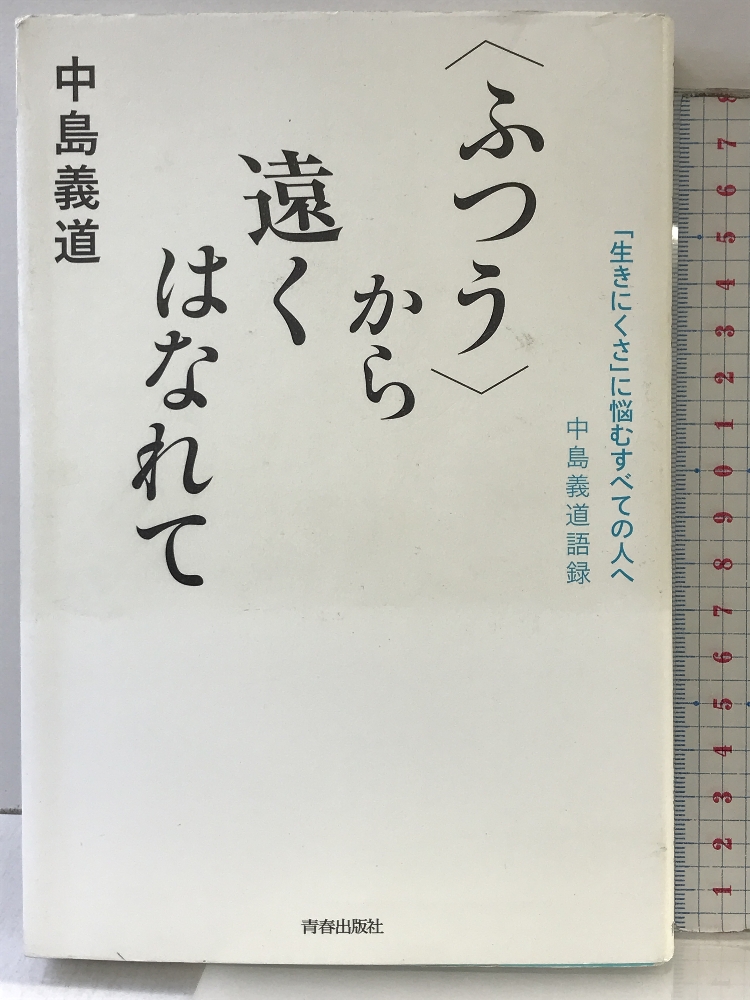 「生きにくさ」に悩むすべての人へ
中島義道語録
〈ふつう〉
から
遠く
はなれて
中島義道
青春出版社
8
7
6
5
4
3
2
1
0
9
8
7
6
5
4
3
2
1